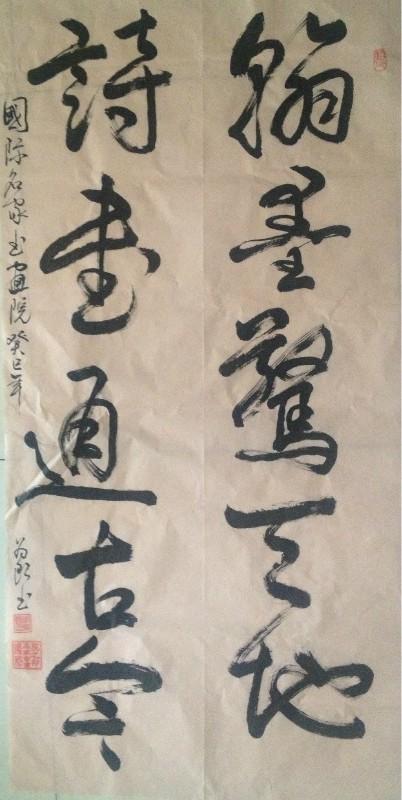 翰墨驚天地
詩書通古今
國际名家书画院癸巳年
书